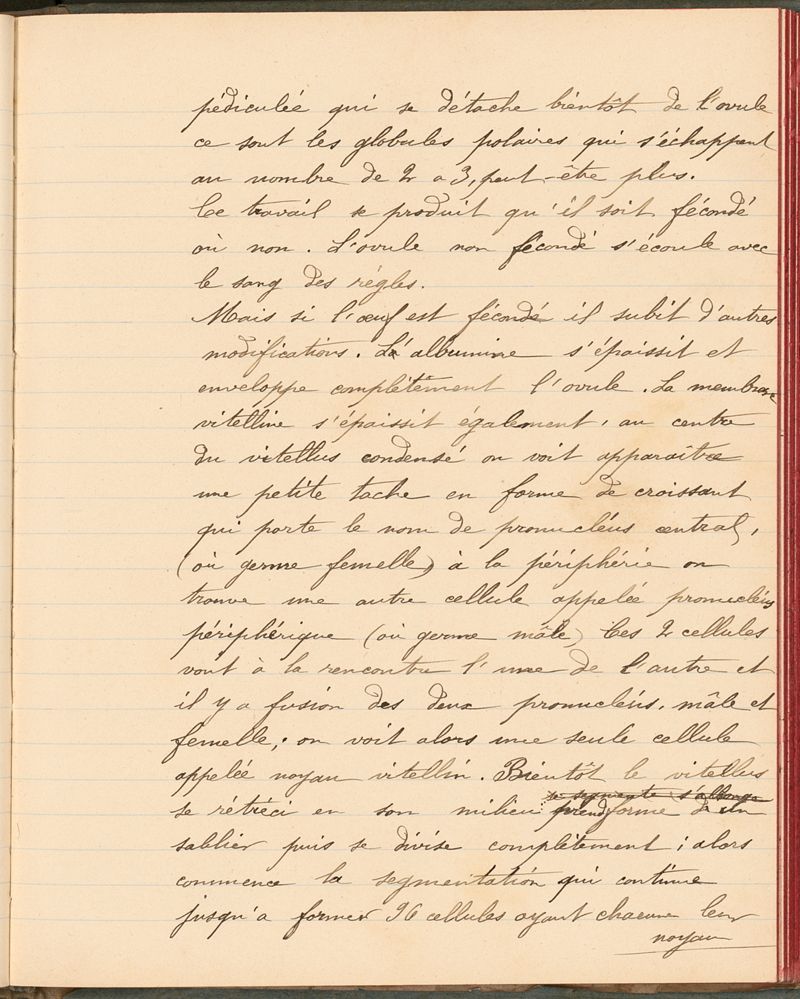 pédiculée qui se détache bientôt de l'ovule
ce sont les globules polaires qui s'échappent
au nombre de 2 a 3, peut-être plus.
Ce travail se produit qu'il soit fécondé
où non. L'ovule non fécondé s'écoule avec
le sang des règles.
Mais si l'œuf est fécondé il subit d'autres
modifications. L'albumine s'épaissit et
enveloppe complètement l'ovule. La membrane
vitelline s'épaissit également, au centre
du vitellus condensé on voit apparaître
une petite tache en forme de croissant
qui porte le nom de pronucléus central,
(où germe femelle) à la périphérie on
trouve une autre cellule appelée pronucléus
périphérique (où germe mâle) Ces 2 cellules
vont à la rencontre l'une de l'autre et
il y a fusion des deux pronucléus, mâle et
femelle; on voit alors une seule cellule
appelée noyau vitellin. Bientôt le vitellus
se segmente s'allonge
se rétréci en son milieu prend forme d'un
sablier puis se divise complètement; alors
commence la segmentation qui continue
jusqu'a former 96 cellules ayant chacune leur
noyau